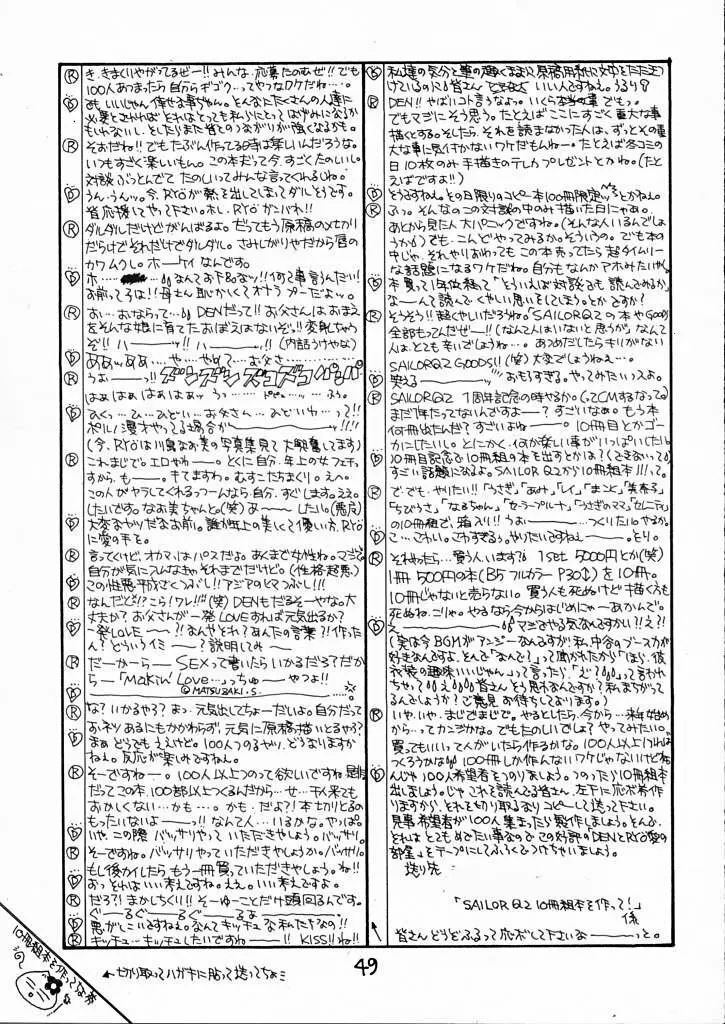 Ⓓ 私達の気分と筆の趣くままに原稿用紙に文字をただぶつ
けているの皆さんいいんですねえ。うるうる
Ⓡ DEN!! やばいコト言うなよっ。いくら本当の事でもっ。
でもマジにそう思う。たとえばここにすごく重大な事
描くとする。そしたら、それを読まなかった人は、ずっとその重
大な事に気付かないワケだもんねー。たとえば冬コミの
日10枚のみ手描きのテレカプレゼントとかね。(たと
えばですよ!!)
Ⓓ そうですねえ。その日限りのコピー本100冊限定ッとかねん。
Ⓡ ふっ。そんなのこの対談の中のみ描いた日にゃあの。
あとから見た人大パニックですね。(そんな人いるんでしょ
うか) でも、こんどやってみるか。そういうの。でも本の
中じゃ、それやりおわってもこの本売ってたら超タイムリー
な話題になるワケだね。自分もなんかアホみたいやん。
Ⓓ 本買って1年位経って「そういえば対談でも読んでみるか」
なーんて読んでくやしい思いをしてしまう。とかですか?
Ⓡ そうそう!! 超くやしいだろね。「SAILORQ2の本やGoods
全部もってんだぜー!! (なんて人はいないと思うが)」なんて
人は、とても辛いでしょうねー… あつめだしたらキリがない
SAILORQ2 GOODS!! (笑) 大変でしょうねえっ。
Ⓓ 笑えるー!! おもしろすぎる。やってみたいっスよ。
Ⓡ SAILORQ2 1周年記念の時やるか。(C2CMするなって)
まだ1年たってないんですよー? すごいなあ。もう本
何冊出たんだ? すごいよねー。10冊目とかゴー
カにしたいし。とにかく、何か楽しい事がいっぱいしたいし
Ⓓ 10冊目記念で10冊組の本を出すとかは? (できないって)
すごい話題になるよ。SAILORQ2から10冊組本!!! って。
Ⓡ で・でも・やりたい!! 「うさぎ」「あみ」「レイ」「まこと」「美奈子」
「ちびうさ」「なるちゃん」「セーラープルート」「うさぎのママ」「セレニティ」
の10冊組で、箱入り!! うぉーー…つくりたい。やるか。
Ⓓ こ…こわい。こわすぎるっ。やりたいですねえーっ。とり。
Ⓡ それやったら…買う人います? 1set 5000円とか(笑)
1冊500円の本(B5フルカラーP30↕)を10冊。
10冊じゃないと売らない。買う人も死ぬけど描く人も
死ぬね。こりゃ。やるなら今からはじめにゃーあかんで。
Ⓓ え………マジでやる気なんですかい?! え?!
(実は今BGMがアンジーなんですが、私、中谷のブースカが
好きなんですよ。そんで「なんで?」って聞かれたから「ほら、彼
衣装の趣味いいじゃん」って言ったら、「え?」って言われ
ちゃってえ皆さんどう思われますか?私まちがって
るんでしょうか? ご意見お待ちしております。)
Ⓡ いや、いや、まじでまじで。やるとしたら、今から…来年始め
から…ってカンジかな。でもたのしいでしょ?やってみたい。
買ってもいいって人がいたら作るかな。100人以上いれば
つくろうかな。100人しか作んないワケじゃないけど。
Ⓓ んじゃ100人希望者をつのりましょう。つのったら10冊組本
出しましょう。じゃこれを読んでる皆さん、左下に応ボ券作
りますから、それを切り取るなりコピーして送って下さい。
見事希望者が100人集まったら製作しましょう。そんで
それはとてもめでたい事なのでこの対談の「DENとRYO愛の
部屋」をテープにしてふろくでつけちゃいましょう。
送り先
「SAILORQ2 10冊組本を作って!」
係
皆さんどうどふるって応ボして下さいなーーっと。
Ⓡ き、きまくりやがってるぜー!! みんな、応募たのむぜ!! でも
100人あつまったら自分らギゴクッ…ってやつなワケだねー…。
Ⓓ いいじゃん。倖せな事じゃん。とんなにたくさんの人達に
必要とされれば、それはとっても私らにとってはげみになるか
もしれないし、そしたらまた皆とのつながりが強くなるかも。
Ⓡ そおだね!! でもたぶん作ってる時は楽しいんだろうな。
いつもすごく楽しいもん。この本だって今、すごくたのしいし。
対談ぶっとんでてたのしいってみんな言ってくれるしね。
Ⓓ うん、うんっ。今、RYOが熱を出してしまってダルそうです。
皆応援してやって下さい。ホレ、RYOガンバレ!!
Ⓡ ダルダルだけどがんばるよ。だってもう原稿のメ切り
だらけでそれだけでダルダル。さみしがりやだから唇の
カワムクレ。ホーケイなんです。
Ⓓ ホ…なんてお下品なッ!! 何て事言うんだい!
お前ってコは!! 母さん恥かしくてオナラプーだよッ。
Ⓡ おい…おならって…。DENだって!! お父さんはおまえ
をそんな娘に育てたおぼえはないぞッ!! 変身しちゃう
ぞ!! ハーーッ!! ハーーッ!! (内話うけやな)
Ⓓ ああッああ…や…やめて…お父さ…
Ⓡ うおーーッ!! ズンズンズコズコパンパン
はぁはぁはぁはぁはぁッ うっ……ふう。
Ⓓ ひくっ…ひ…ひどい…お父さん…ひどいわ…って!!
ポルノ漫才やってる場合かーーッ!!!
(今、RYOは川島なお美の写真集見て大興奮してます)
Ⓡ これまじで。エロやねー。とくに自分、年上の女フェチっ
すから。もーー。キてますわ。むすこたちまくり。えへ。
この人がヤラしてくれるっつーんなら、自分、すぐします。ええ。
したいです。なお美ちゃんと。(笑) あーー したいっ。(愚民)
Ⓓ 大変なヤツだなぁお前。誰か年上の美しくて優しい方、RYO
に愛の手を。
Ⓡ 言ってくけど、オカマ、はパスだよ。あくまで女性ね。マジで。
自分が気に入んなきゃそれまでだけど。(性格超悪)
Ⓓ この性悪平成ごくつぶし!! アジアのヒマつぶし!!!
Ⓡ なんだと!? こら! ワレ!! (笑) DENもだるそーやな。大
丈夫か? お父さんが一発LOVEすれば元気出るか?
Ⓓ 一発LOVEーー?!! なんやそれ? あんたの言葉?! 作った
ん? どういうイミーー? 説明してみー
Ⓡ だーかーらーSEXって書いたらいかるだろ?だか
らー「Makin' Love…っちゅーーやつよ!!
©MATSUZAKI.S.
な?いかるやろ? まっ、元気出してちょーだいよ。自分だって
おネツあるにもかかわらず、元気に原稿描いとるやろ?
Ⓓ まぁどうでもええけど。100人つのるやツ、どうなりますか
ねえ。反応が楽しみですねえ。
Ⓡ そーですねー。100人以上つのって欲しいですね。
だってこの本、100部以上つくるんだから…せ…千人来ても
おかしくない…かも…。かも、だよ?! 本切りとるの
もったいないよーっ!! なんて人…いるかな。やっぱ。
Ⓓ いや、この際バッサリやっていただきやしょう。バッサリ。
Ⓡ そーですね。バッサリやっていただきやしょうか。バッサリ。
もし後カイしたらもう一冊買っていただきやしょう。ね!!
Ⓓ おっそれはいい考えですね。ええ。いい考えですよ。
Ⓡ だろ?! まかしちくり!! そーゆーことだけ頭回るんです。
ぐーるぐーーるぐるなーー
Ⓓ 悪がしこいですねえっ。なんてキッチュな私たちなの!!
Ⓡ キッチュ…キッチュしたいですねーー!! KISS!! ね!!
10冊組本を作ってな券
←切り取ってハガキに貼って送ってちょ
49